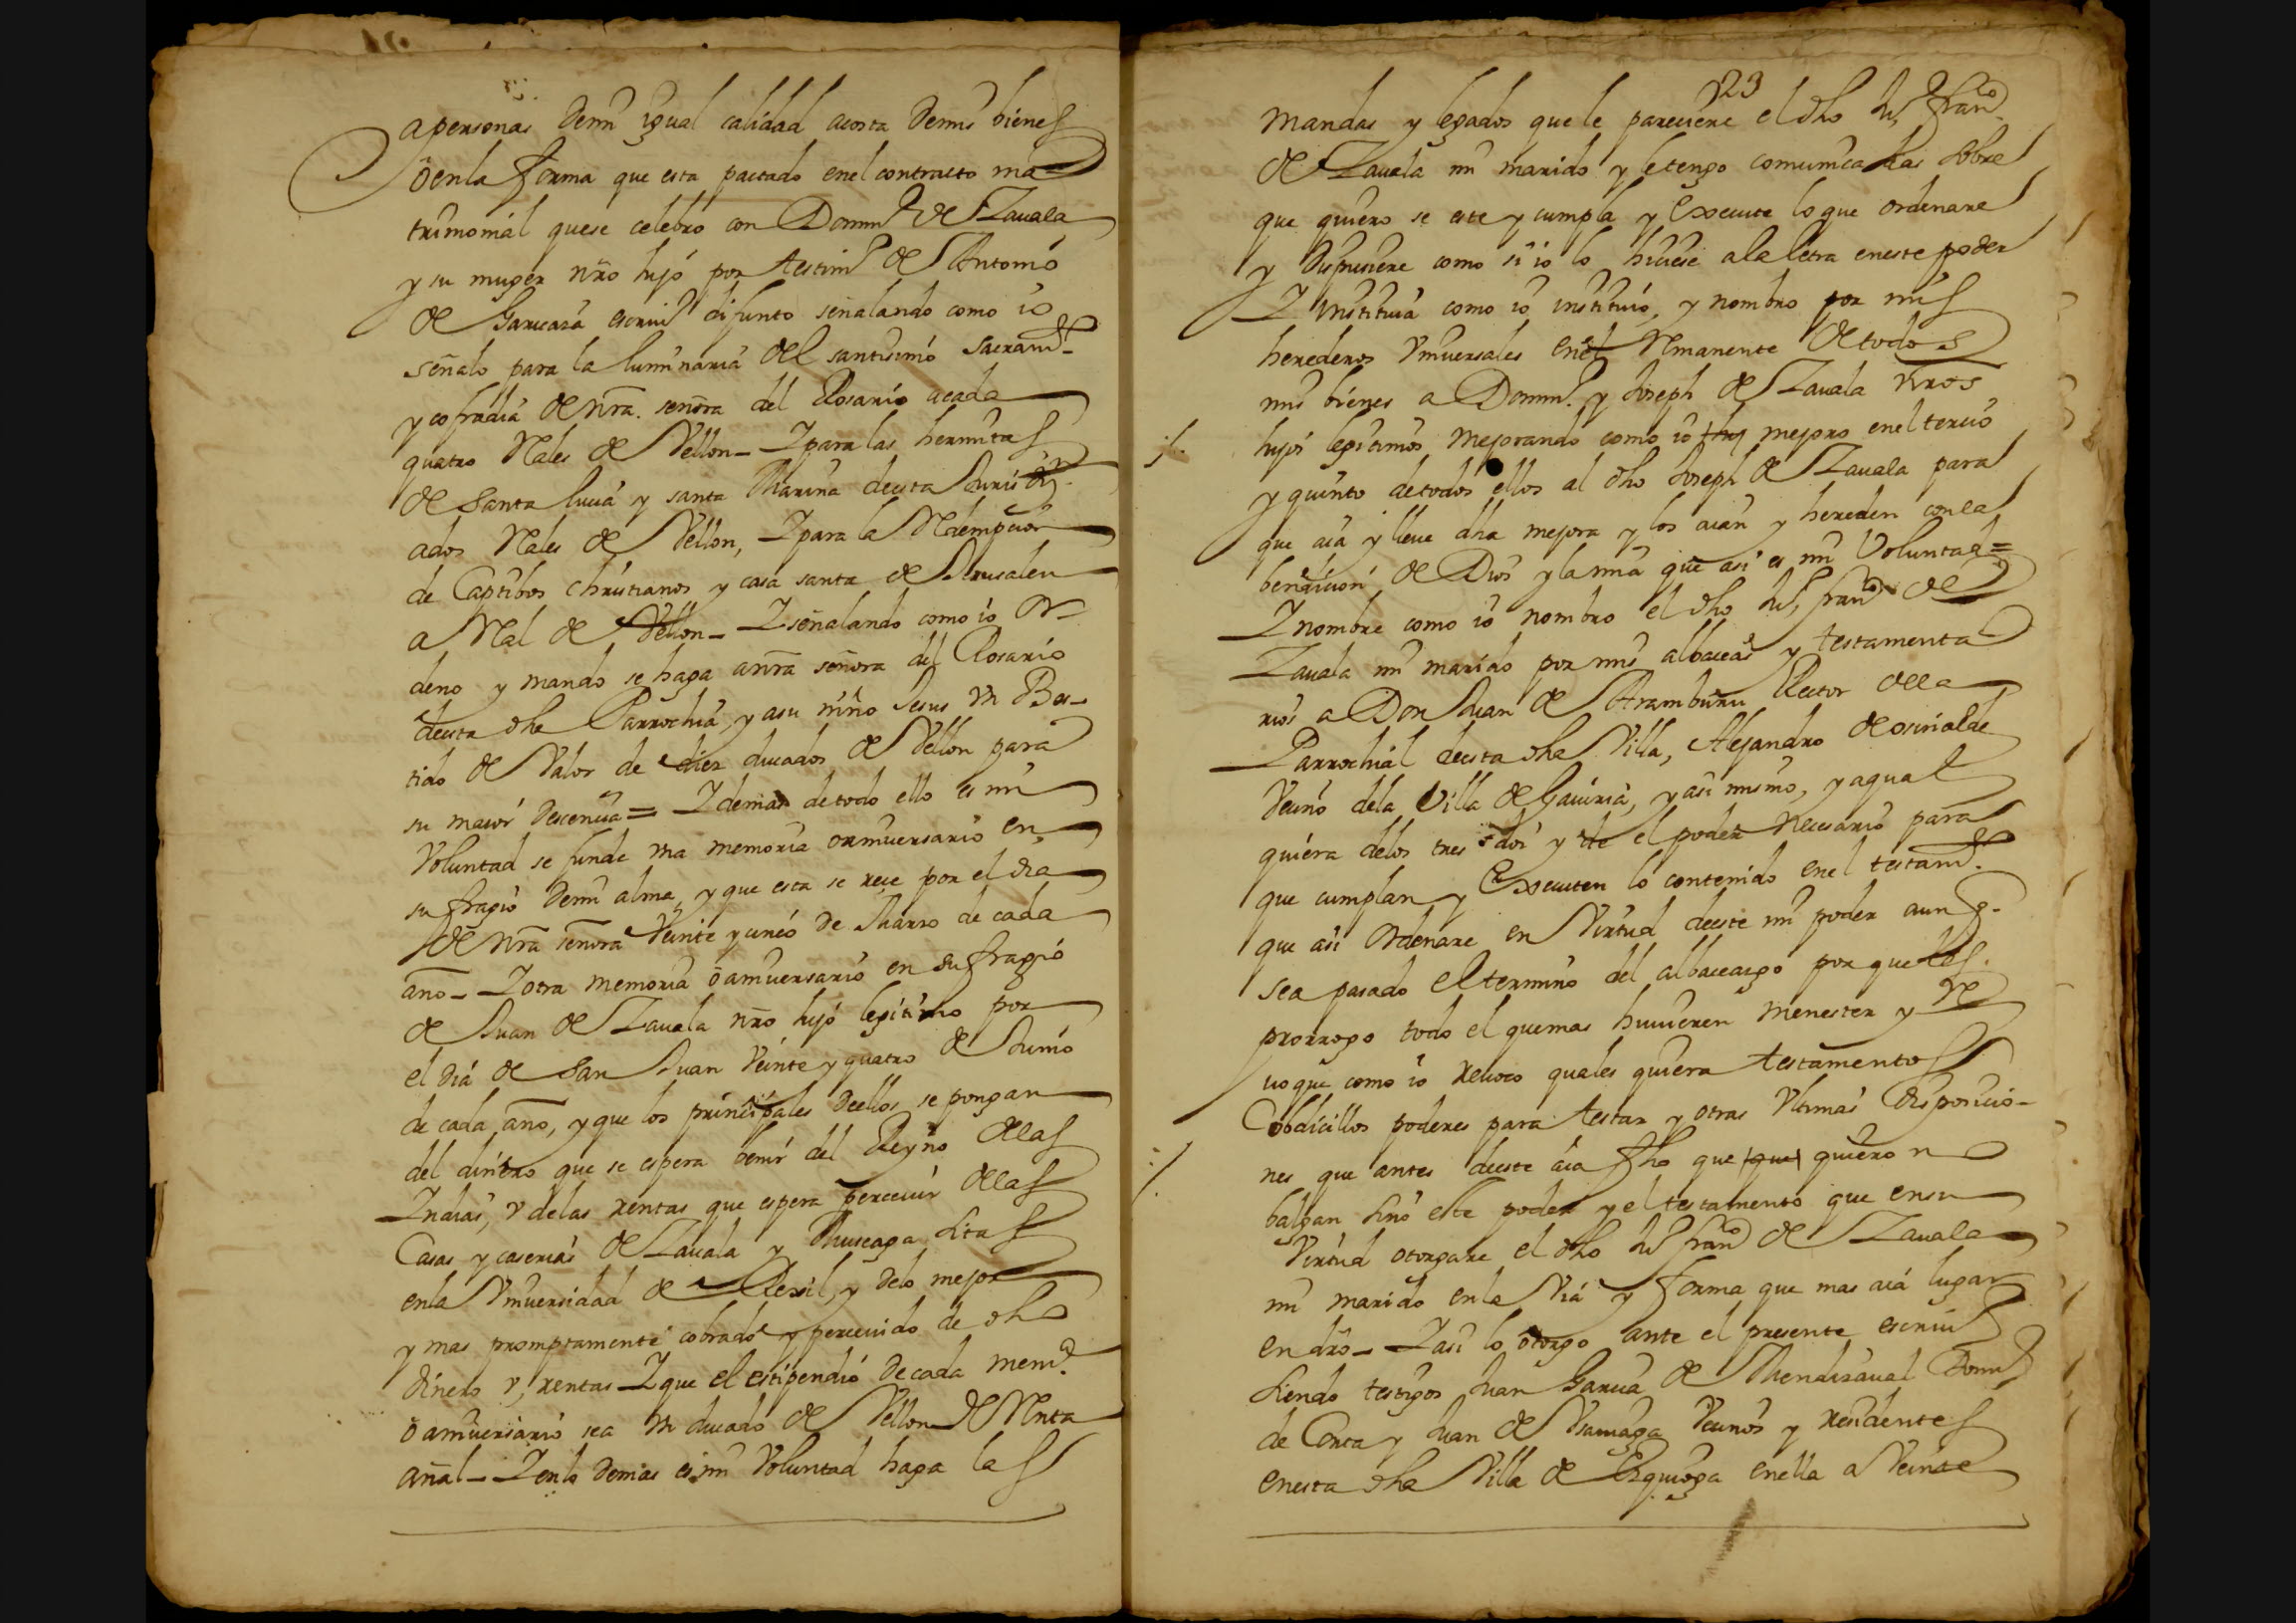 apersonas demi igual calidad acosta demis bienes
ō enla forma que esta pactado enel contracto ma
trimonial quese celebró con Domin.º de Zauala
y su muger nr̄o hijo por testim.º de Antonio
de Garicasa escriu.º difunto señalando como io
señalo para la luminaria del santisimo sacram.to
y cofradia de nr̄a. señora del Rosario acada
quatro Rales de Vellon_ I para las hermitas
de Santa lucia y santa Marina deesta Jurisd.on
ados Rales de Vellon, I para la Redempcion
de Captibos christianos y casa santa de Jerusalen
a Real de Vellon_ I señalando como io or_
deno y mando se haga anr̄a señora del Rosario
deesta dha Parrochia, y asu niño Jesus Vn Bes_
tido de Valor de diez ducados de Vellon para
su maior descencia= I demas detodo ello es mi
Voluntad se funde Vna memoria o aniuersario en
sufragio demi alma, y que esta se rece por el dia
de nr̄a señora Veinte y cinco de Marzo de cada
año_ I otra memoria ō aniuersario en sufragio
de Juan de Zauala nr̄o hijo legitimo por
el dia de San Juan Veinte y quatro de Junio
de cada año, y que los principales deellos se pongan
del dinero que se espera benir del Reyno delas
Indias, y delas rentas que espera perceuir delas
Casas y caserias de Zauala y Muscaga sitas
enla Vniuersidad de Rexil, y delo mejor
y mas promptamente cobrado y perceuido de dho
dinero y, rentas_ I que el estipendio decada mem.a
ō aniuersario sea Vn ducado de Vellon de Renta
añal_ I enlo demas es mi Voluntad haga las
23
mandas y legados quele pareciere el dho Ju.º fran.co
de Zauala mi marido y letengo comunicadas sobre
que quiero se este y cumpla y Execute loque ordenare
y dispusiere como si io lo hiciese ala letra eneste poder
I instituia como io instituio, y nombro por mis
herederos Vniuersales enel Remanente de todos
mis bienes a Domin.º y Joseph de Zauala nr̄os
hijos legitimos, mejorando como io mejoro enel tercio
y quinto detodos ellos al dho Joseph de Zauala para
que aia y lleue dha mejora y los aian y hereden conla
bendicion de Dios y la mia que asi es mi Voluntad=
I nombre como io nombro el dho Ju.º fran.co de
Zauala mi marido por mis albaceas y testamenta
rios a Don Juan de Aramburu Rector dela
Parrochial deesta dha Villa, Alejandro de osinalde
Vecino dela Villa de Gauiria, y asi mismo, y aqual
quiera delos tres dos y de el poder Necesario para
que cumplan y Executen lo contenido enel testam.to
que asi Ordenare en Virtud deeste mi poder aunq.
sea pasado El termino del albaceazgo porque les
prorrogo todo el quemas huuieren menester y Re
uoque como io reuoco quales quiera testamentos
Cobdicillos poderes para testar y otras Vltimas disposicio_
nes que antes deeste aia fho que que quiero no
balgan sino este poder y el testamento que ensu
Virtud otorgare el dho Ju.º fran.co de Zauala
mi marido enla Via y forma que mas aia lugar
en dr̄o_ I asi lo otorgo ante el presente escriu.º
siendo testigos Juan Garcia de Mendizaual Domin.º
de Corta y Juan de Vecinos y residentes
enesta dha Villa de Ezquioga enella a Veinte